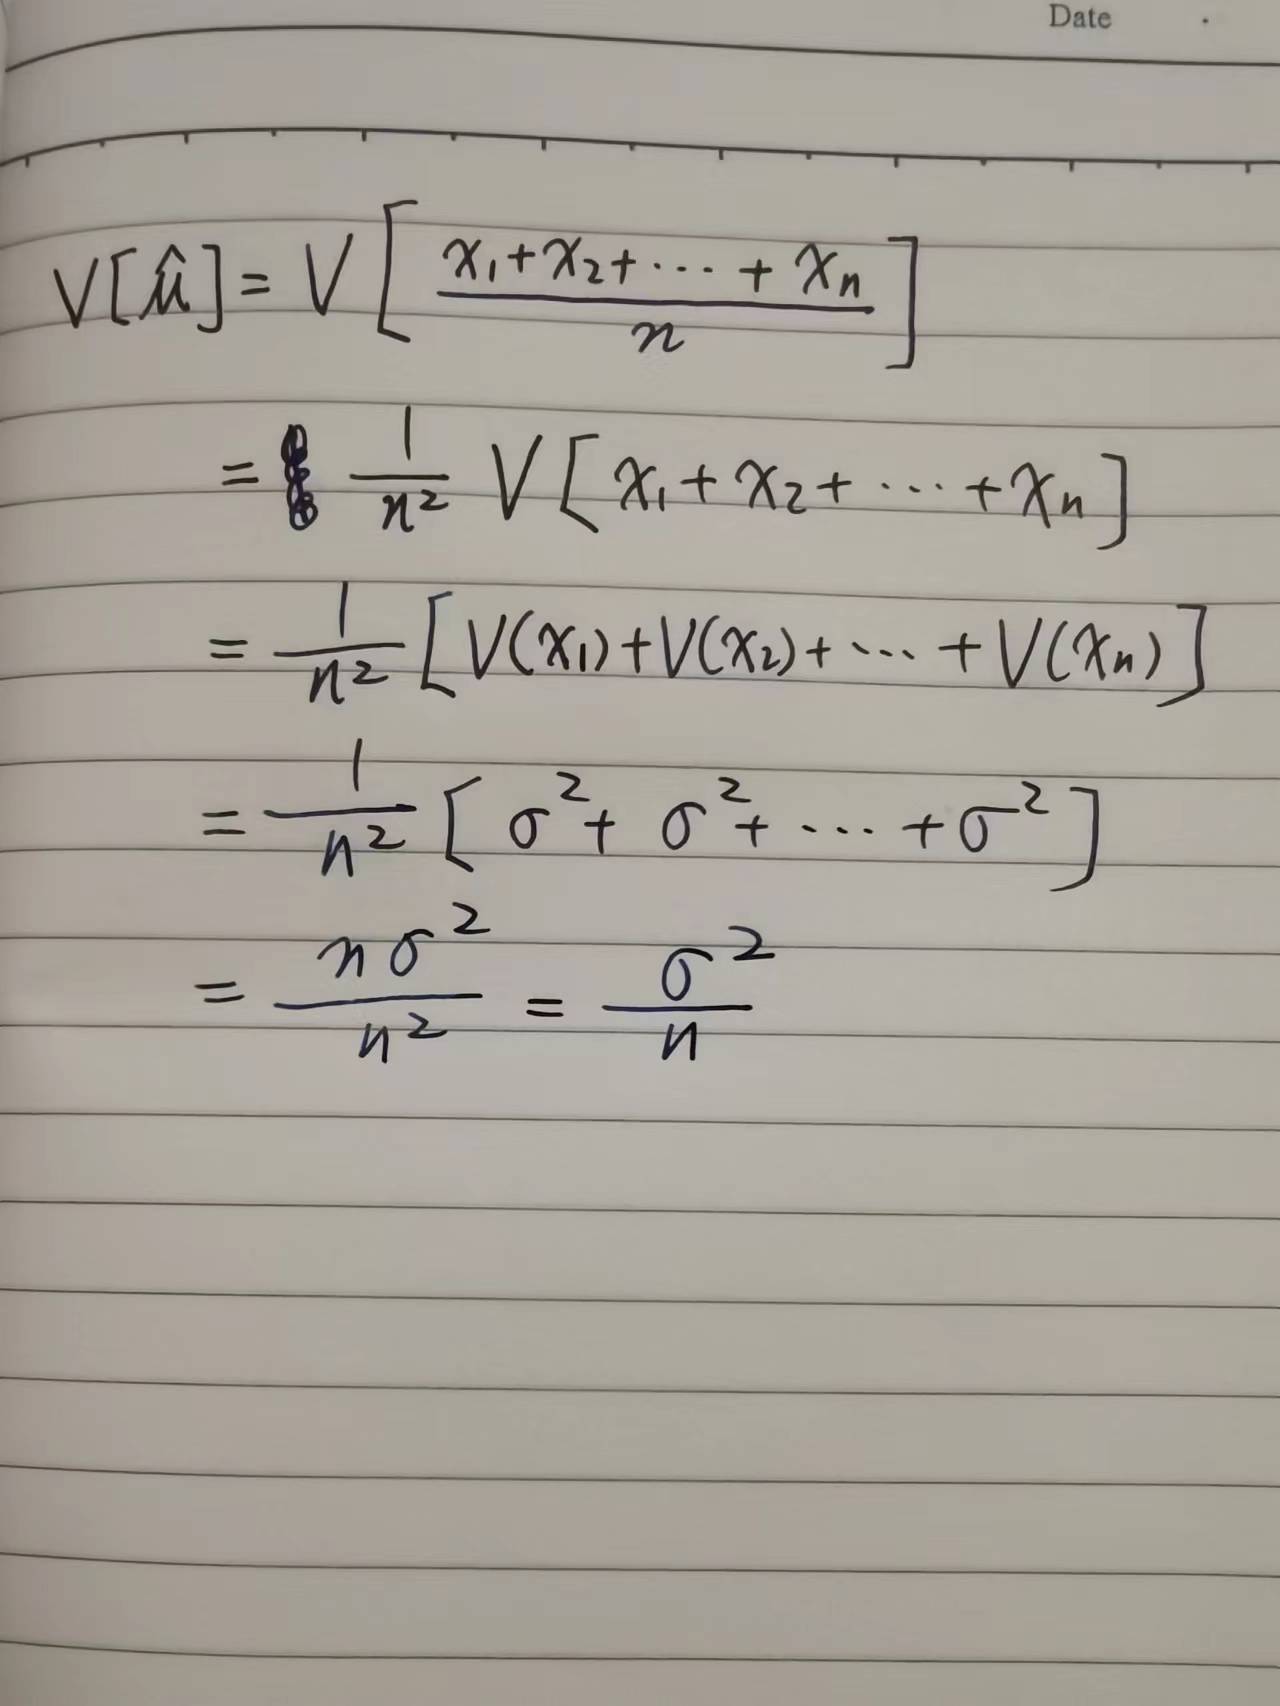 Date
V[μ̂] = V[(x₁+x₂+⋯+xₙ)/n]
= 1/n² V[x₁+x₂+⋯+xₙ]
= 1/n² [V(x₁)+V(x₂)+⋯+V(xₙ)]
= 1/n² [σ²+σ²+⋯+σ²]
= nσ²/n² = σ²/n